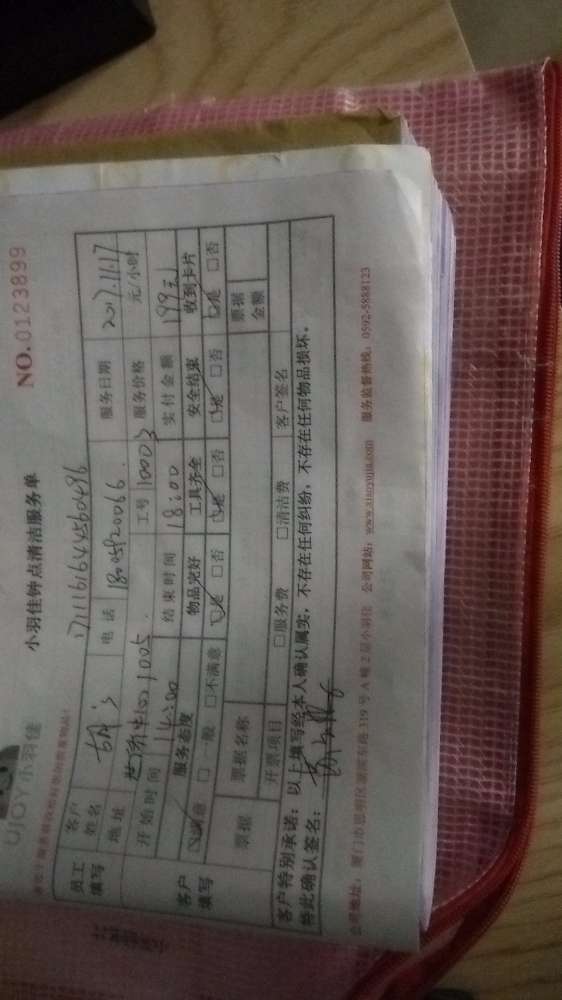 UJOY小羽佳
小羽佳钟点清洁服务单 NO.0123899
1711161644560496
员工填写 客户姓名 电话 18059220066 服务日期 2017.11.17
地址 1005 工号 10003 服务价格 元/小时
开始时间 14:00 结束时间 18:00 实付金额 199元
客户填写 服务态度 物品完好 工具齐全 安全结束 收到卡片
□满意 □一般 □不满意 □是 □否 □是 □否 □是 □否 □是 □否
票据 票据名称 票据金额
开票项目 □服务费 □清洁费 客户签名
客户特别承诺：以上填写经本人确认属实，不存在任何纠纷，不存在任何物品损坏。
特此确认签名：
公司地址：厦门市思明区湖滨东路319号A幢2层小羽佳 公司网站：www.xiaoyujia.com 服务监督热线：0592-5888123